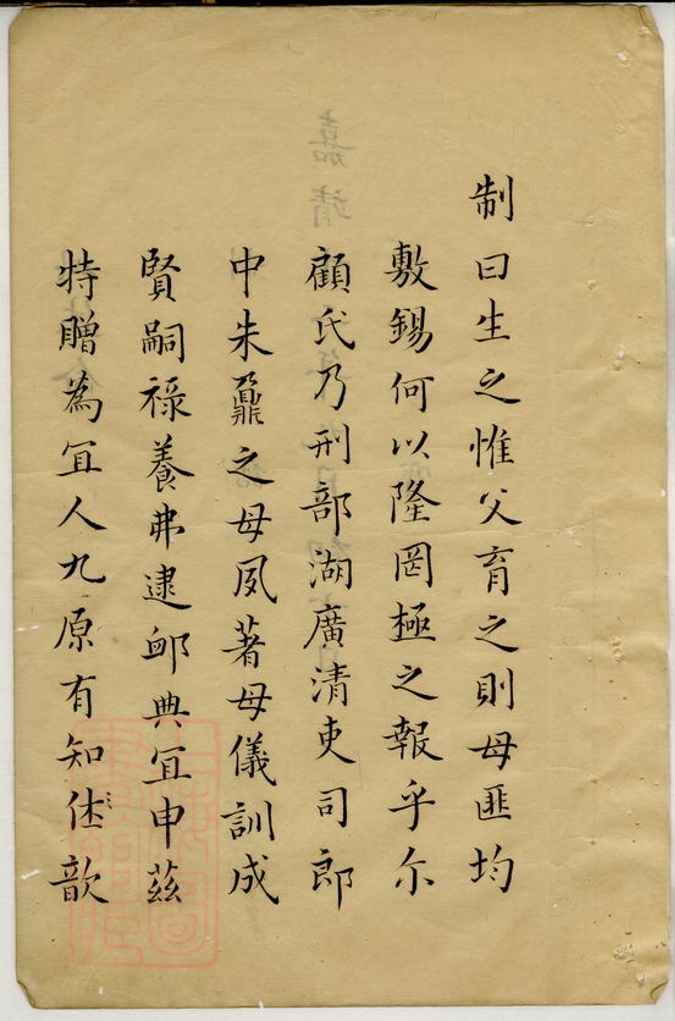 制曰生之惟父育之則母匪均
敷錫何以隆罔極之報乎尔
顧氏乃刑部湖廣清吏司郎
中朱鼐之母夙著母儀訓成
賢嗣祿養弗逮卹典宜申茲
特贈為宜人九原有知仕歆